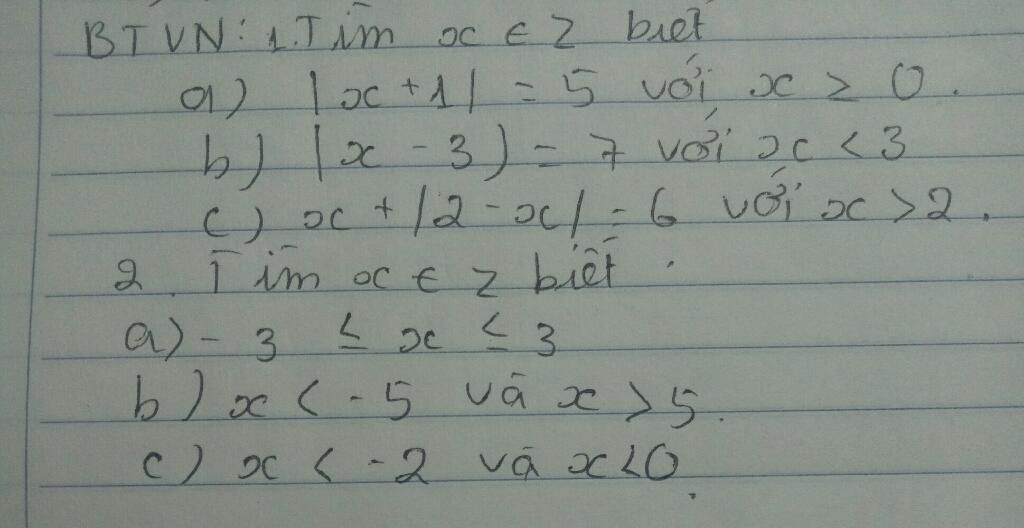 BTVN: 1. Tìm x ∈ Z biết
a) |x + 1| = 5 với x ≥ 0.
b) |x - 3) = 7 với x < 3
c) x + |2 - x| = 6 với x > 2.
2. Tìm x ∈ Z biết.
a) - 3 ≤ x ≤ 3
b) x < - 5 và x > 5.
c) x < - 2 và x < 0.